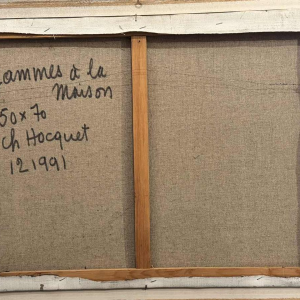 lammes à la
Maison
50x70
ch Hocquet
12 1991